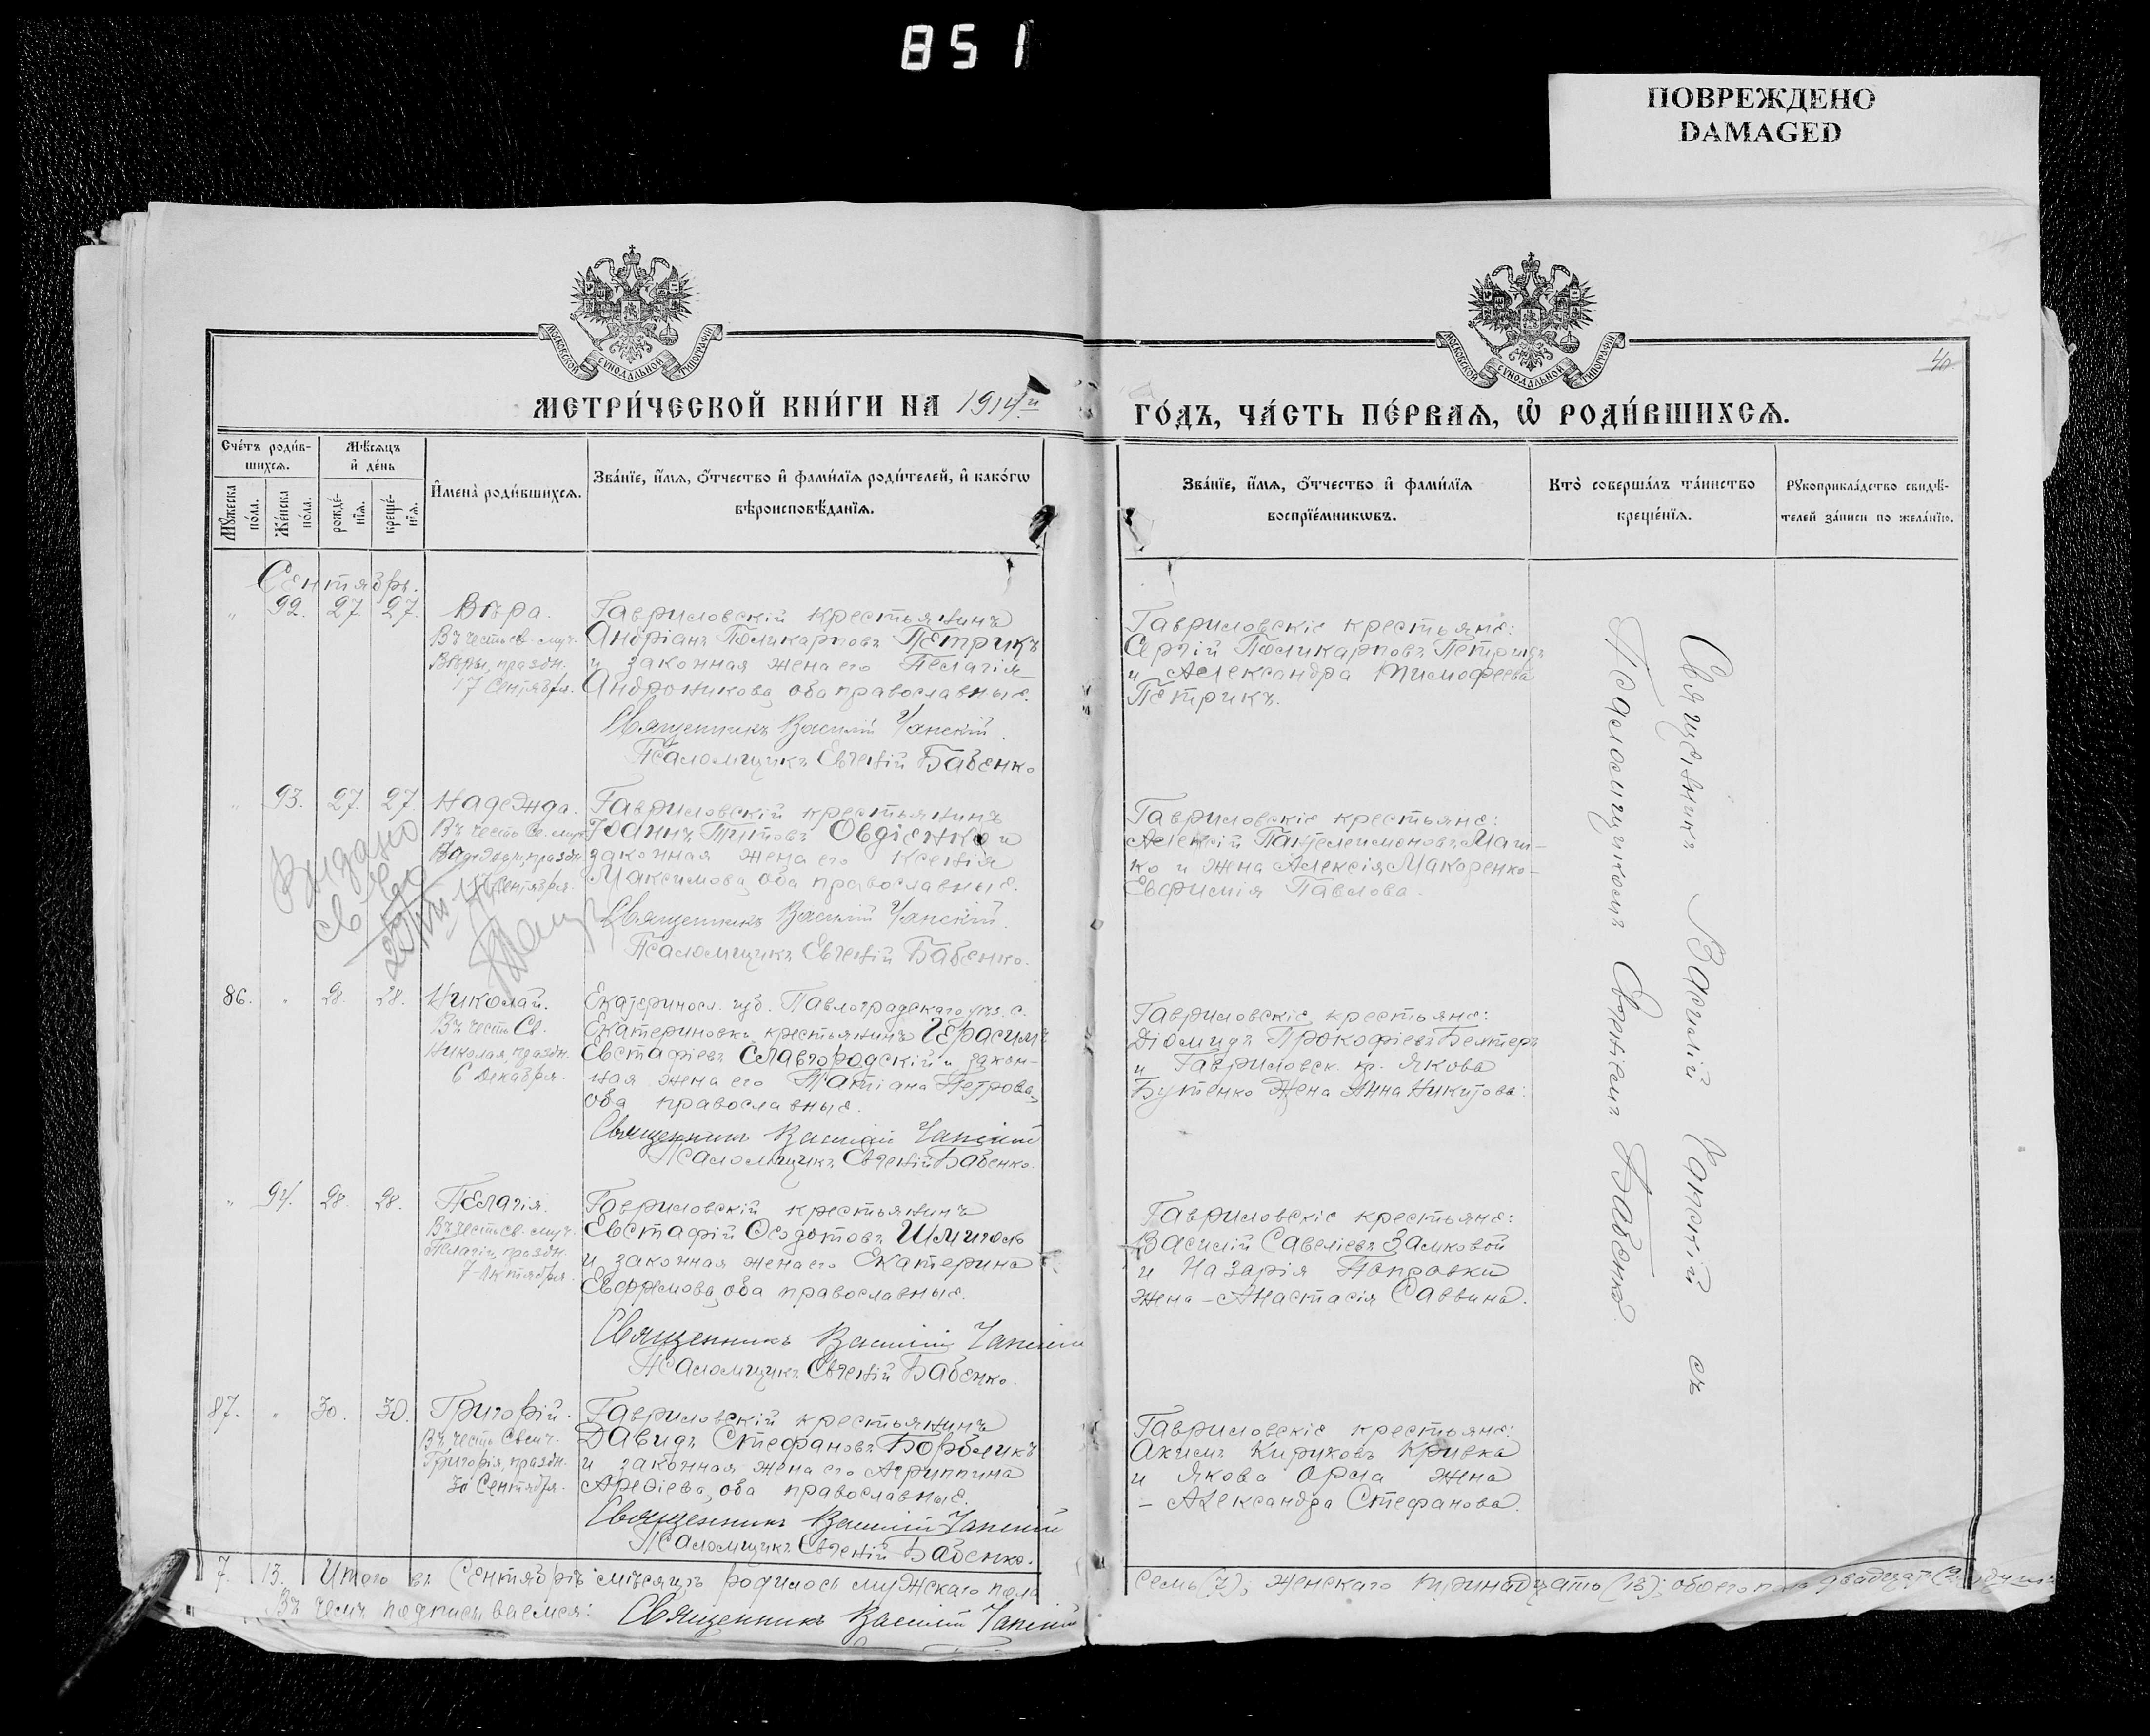 851
ПОВРЕЖДЕНО
DAMAGED
МОСКОВСКОЙ СѴНОДАЛЬНОЙ ТИПОГРАФІИ
МОСКОВСКОЙ СѴНОДАЛЬНОЙ ТИПОГРАФІИ
40
МЕТРИ́ЧЕСКОЙ КНИ́ГИ НА 1914й
ГО́ДЪ, ЧА́СТЬ ПЕ́РВАѦ, Ѡ҆ РОДИ́ВШИХСѦ.
Сче́тъ роди́в-
шихсѧ.
Мꙋ́жеска по́ла.
Же́нска по́ла.
Мѣ́сѧцъ
и҆ де́нь
рожде́-
нїѧ.
креще́-
нїѧ.
И҆мена̀ роди́вшихсѧ.
Зва́нїе, и҆́мѧ, ѻ҆́тчество и҆ фами́лїѧ роди́телей, и҆ како́гѡ
вѣроисповѣ́данїѧ.
Зва́нїе, и҆́мѧ, ѻ҆́тчество и҆ фами́лїѧ
воспрїе́мникѡвъ.
Кто̀ соверша́лъ та́инство
креще́нїѧ.
Рꙋкоприкла́дство свидѣ́-
телей за́писи по жела́нїю.
Сентябрь.
" 92. 27. 27.
Вѣра.
Въ честь св. муч.
Вѣры, праздн.
17 Сентября.
Гавриловскій крестьянинъ
Андріанъ Поликарповъ Петрикъ
и законная жена его Пелагія
Андроникова, оба православные.
Священникъ Василій Чапскій.
Псаломщикъ Евгеній Бабенко
Гавриловскіе крестьяне:
Сергій Поликарповъ Петрикъ
и Александра Тимофеева
Петрикъ.
" 93. 27. 27.
Надежда.
Въ честь св. муч.
Надежды, праздн.
17 Сентября.
Выдано
Гавриловскій крестьянинъ
Іоаннъ Титовъ Овдіенко и
законная жена его Ксенія
Максимова, оба православные.
Священникъ Василій Чапскій.
Псаломщикъ Евгеній Бабенко.
Гавриловскіе крестьяне:
Алексій Пантелеимоновъ Маш-
ко и жена Алексія Макаренко-
Евфимія Павлова.
86. " 28. 28.
Николай.
Въ честь Св.
Николая, праздн.
6 Декабря.
Екатеринос. губ. Павлоградскаго уѣз. с.
Екатериновки крестьянинъ Герасимъ
Евстафіевъ Славгородскій и закон-
ная жена его Татіана Петрова,
оба православные.
Священникъ Василій Чапскій
Псаломщикъ Евгеній Бабенко.
Гавриловскіе крестьяне:
Діомидъ Прокофіевъ
и Гавриловск. кр. Якова
Бутенко жена Анна Никитова.
" 94. 28. 28.
Пелагія.
Въ честь св. муч.
Пелагіи, праздн.
7 Октября.
Гавриловскій крестьянинъ
Евстафій Ѳеодотовъ Шмиголь
и законная жена его Екатерина
Евфимова, оба православные.
Священникъ Василій Чапскій
Псаломщикъ Евгеній Бабенко.
Гавриловскіе крестьяне:
Василій Савеліевъ Замковой
и Назарія Поправки
жена - Анастасія Саввина.
87. " 30. 30.
Григорій.
Въ честь Свсмч.
Григорія, праздн.
30 Сентября.
Гавриловскій крестьянинъ
Давидъ Стефановъ
и законная жена его Агриппина
Арефіева, оба православные.
Священникъ Василій Чапскій
Псаломщикъ Евгеній Бабенко.
Гавриловскіе крестьяне:
Акимъ Кириковъ Кривка
и Якова Орла жена
- Александра Стефанова.
Священникъ Василій Чапскій съ
Псаломщикомъ Евгеніемъ Бабенко.
7. 13. Итого въ Сентябрѣ мѣсяцѣ родилось мужскаго пола
семь (7), женскаго тринадцать (13); обоего пола двадцать
Въ чемъ подписываемся: Священникъ Василій Чапскій